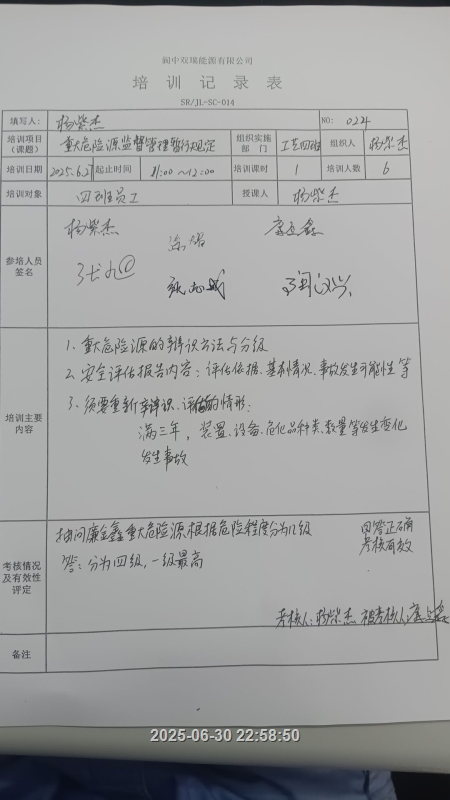 阆中双瑞能源有限公司
培训记录表
SR/JL-SC-014
填写人: 杨紫杰 NO: 0224
培训项目(课题) 重大危险源监督管理暂行规定 组织实施部门 工艺四班 组织人 杨紫杰
培训日期 2025.6.27 起止时间 11:00～12:00 培训课时 1 培训人数 6
培训对象 四班员工 授课人 杨紫杰
参培人员签名
杨紫杰
培训主要内容
1、重大危险源的辩识方法与分级
2、安全评估报告内容：评估依据、基本情况、事故发生可能性等
3、须要重新辩识、评估的情形：
满三年，装置、设备、危化品种类、数量等发生变化
发生事故
考核情况及有效性评定
抽问廉金鑫重大危险源根据危险程度分为几级
答：分为四级，一级最高
回答正确
考核有效
考核人：杨紫杰 被考核人：
备注
2025-06-30 22:58:50